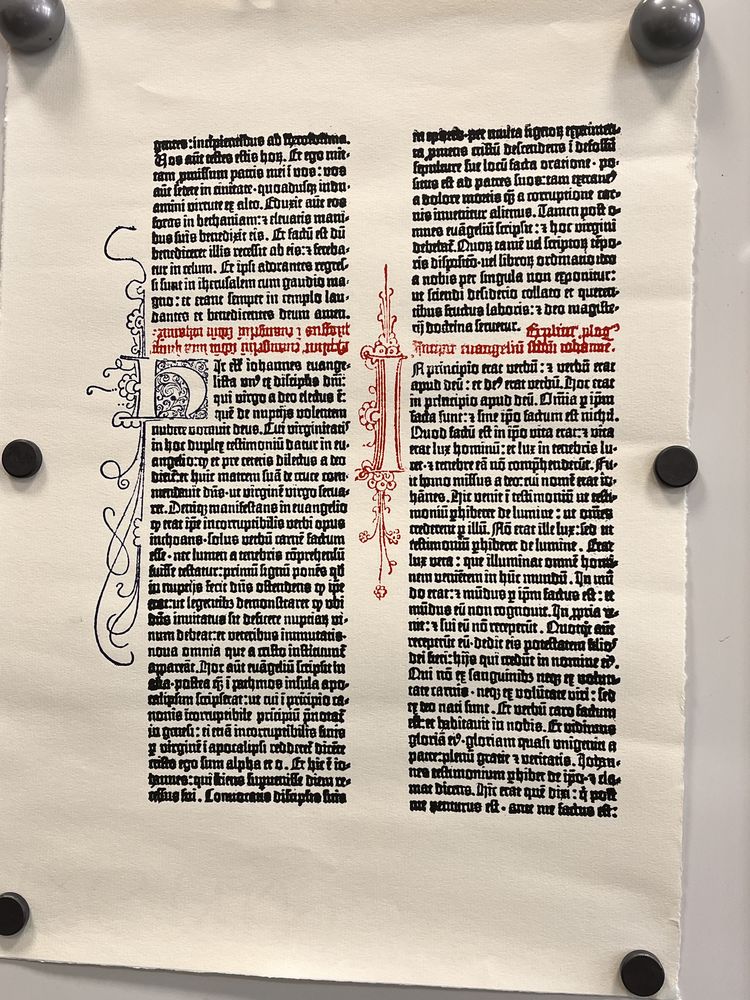 gentes: incipientibus ab iherosolima.
Vos aūt testes estis horꝝ. Et ego mit-
tam ꝓmissum patris mei ī vos: vos
aūt sedete in civitate · quoadusqꝫ indu-
amini virtute ex alto. Eduxit aūt eos
foras in bethaniam: ⁊ elevatis mani-
bus suis benedixit eis. Et factū est dū
benediceret illis recessit ab eis: ⁊ fereba-
tur in celum. Et ipsi adorantes regres-
si sunt in iherusalem cum gaudio ma-
gno: et erant semper in templo lau-
dantes et benedicentes deum amen.
Hic est iohannes evange-
lista unꝰ ex discipłis dn̄i:
qui virgo a deo electus ē:
quē de nuptijs volentem
nubere vocavit deus. Cui virginitatꝭ
in hoc duplex testimoniū datur in eu-
angelio: ꝙ et pre ceteris dilectus a deo
dicit̄: et huic matrem suā de cruce com-
mendavit dn̄s · ut virginē virgo serva-
ret. Deniqꝫ manifestans in evangelio
ꝙ erat ip̄e incorruptibilis verbi opus
inchoans · solus verbū carnē factum
esse · nec lumen a tenebris cōprehensū
fuisse testatur: primū signū ponēs qđ
in nuptijs fecit dn̄s ostendens ꝙ ip̄e
erat: ut legentibꝫ demonstraret ꝙ ubi
dn̄s invitatus sit deficere nuptiaꝝ vi-
num debeat: et veteribus immutatis ·
nova omnia que a cristo instituunt̄
appareāt. Hoc aūt evāgeliū scripsit in
asia · postea qꝫ̄ ī pathmos insula apo-
calipsim scripserat: ut cui ī prīcipio ca-
nonis īcorruptibile prīcipiū p̄notat̄
in genesi: ei etiā incorruptibilis finis
ꝑ virginē ī apocalipsi redderet̄ dicēte
cristo ego sum alpha et o. Et hic ē io-
hannes: qui sciens supervenisse diem re-
cessus sui. Convocatis discipłis suis
in epheso · per multa signoꝝ experimen-
ta ꝓmens cristū · descendens ī defossū
sepulture sue locū facta oratione · po-
situs est ad patres suos: tam extraneꝰ
a dolore mortis qꝫ̄ a corruptione car-
nis invenitur alienus. Tamen post o-
mnes evāgeliū scripsit: ⁊ hoc virgini
debebat̄. Quorꝝ tamē vel scriptorꝝ tēpo-
ris dispositio · vel librorꝝ ordinatio ideo
a nobis per singula non exponitur:
ut sciendi desiderio collato et queren-
tibus fructus laboris: ⁊ deo magiste-
rij doctrina servetur. Explicit ꝓlogꝰ
Incipit evangeliū scđm iohannē.
N principio erat verbū: ⁊ verbū erat
apud deū: et deꝰ erat verbū. Hoc erat
in principio apud deū. Omīa ꝑ ip̄m
facta sunt: ⁊ sine ip̄o factum est nichil.
Quod factū est in ip̄o vita erat: ⁊ vita
erat lux hominū: et lux in tenebris lu-
cet · ⁊ tenebre eā nō comp̄henderūt. Fu-
it homo missus a deo: cui nomē erat io-
hānes. Hic venit ī testimoniū ut testi-
moniū ꝑhiberet de lumine · ut omēs
crederent ꝑ illū. Nō erat ille lux: sed ut
testimoniū ꝑhiberet de lumine. Erat
lux vera: que illuminat omnē homi-
nem venientem in hūc mundū. In mū-
do erat: ⁊ mūdus ꝑ ip̄m factus est: et
mūdus eū non cognovit. In ꝓpria ve-
nit: ⁊ sui eū nō receperūt. Quotqꝫ aūt
receperūt eū · dedit eis potestatem filios
dei fieri: hijs qui credūt in nomine eiꝰ.
Qui nō ex sanguinibꝫ neqꝫ ex volun-
tate carnis · neqꝫ ex volūtate viri: sed
ex deo nati sunt. Et verbū caro factum
est: et habitavit in nobis. Et vidimus
gloriā eiꝰ · gloriam quasi unigeniti a
patre: plenū gratie ⁊ veritatis. Johan-
nes testimonium ꝑhibet de ip̄o · ⁊ cla-
mat dicens. Hic erat quē dixi: q̄ post
me venturus est · ante me factus est: